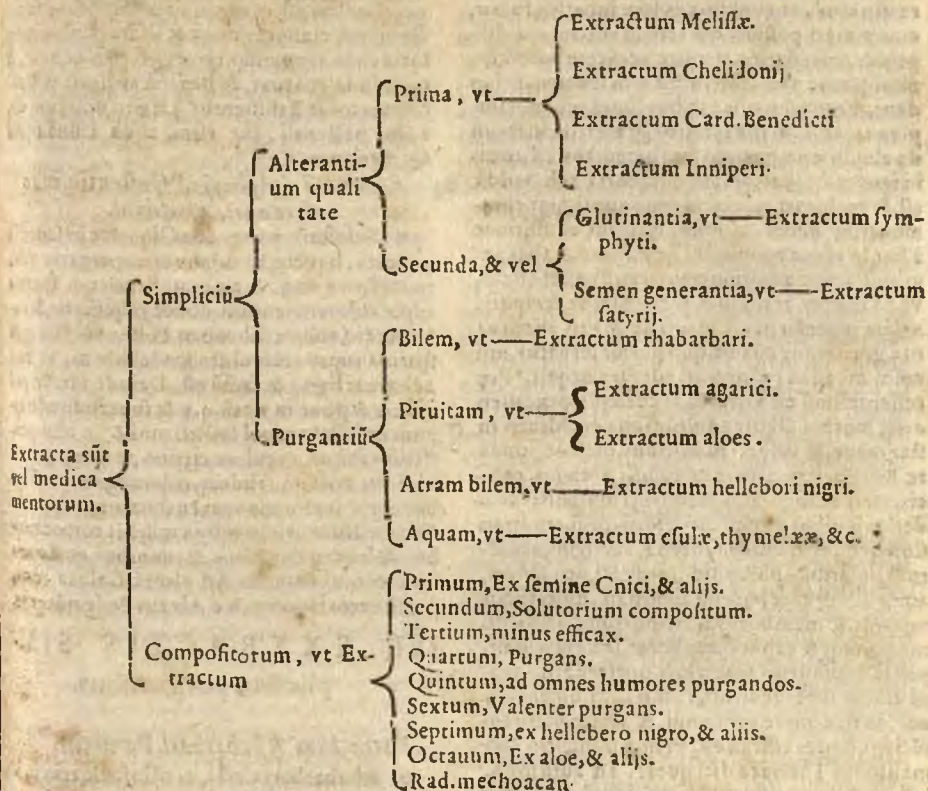 Extracta sūt
vel medica
mentorum.
Simpliciū
Alteranti-
um quali
tate
Prima, vt
Extractum Melissæ.
Extractum Chelidonij
Extractum Card. Benedicti
Extractum Inniperi.
Secunda, & vel
Glutinantia, vt — Extractum ſym-
phyti.
Semen generantia, vt — Extractum
ſatyrij.
Purgantiū
Bilem, vt — Extractum rhabarbari.
Pituitam, vt
Extractum agarici.
Extractum aloes.
Atram bilem, vt — Extractum hellebori nigri.
Aquam, vt — Extractum eſulæ, thymelææ, &c.
Compoſitorum, vt Ex-
tractum
Primum, Ex ſemine Cnici, & alijs.
Secundum, Solutorium compoſitum.
Tertium, minus efficax.
Quartum, Purgans.
Quintum, ad omnes humores purgandos.
Sextum, Valenter purgans.
Septimum, ex hellebero nigro, & aliis.
Octauum, Ex aloe, & alijs.
Rad. mechoacan.